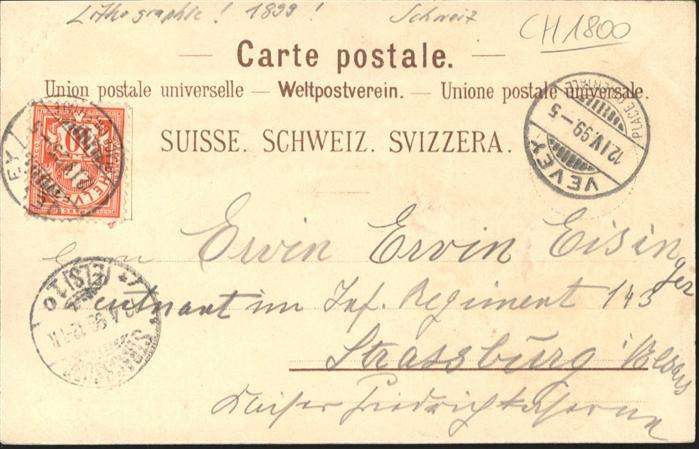 Lithographie! 1899! Schweiz
CH1800
Carte postale.
Union postale universelle — Weltpostverein. — Unione postale universale.
SUISSE. SCHWEIZ. SVIZZERA.
VEVEY
12.IV.99-5
10
HELVETIA
Ervin Ervin Eisinger
Leutnant im Inf. Regiment 143
Strassburg i/Elsass
Kaiser Friedrichkaserne